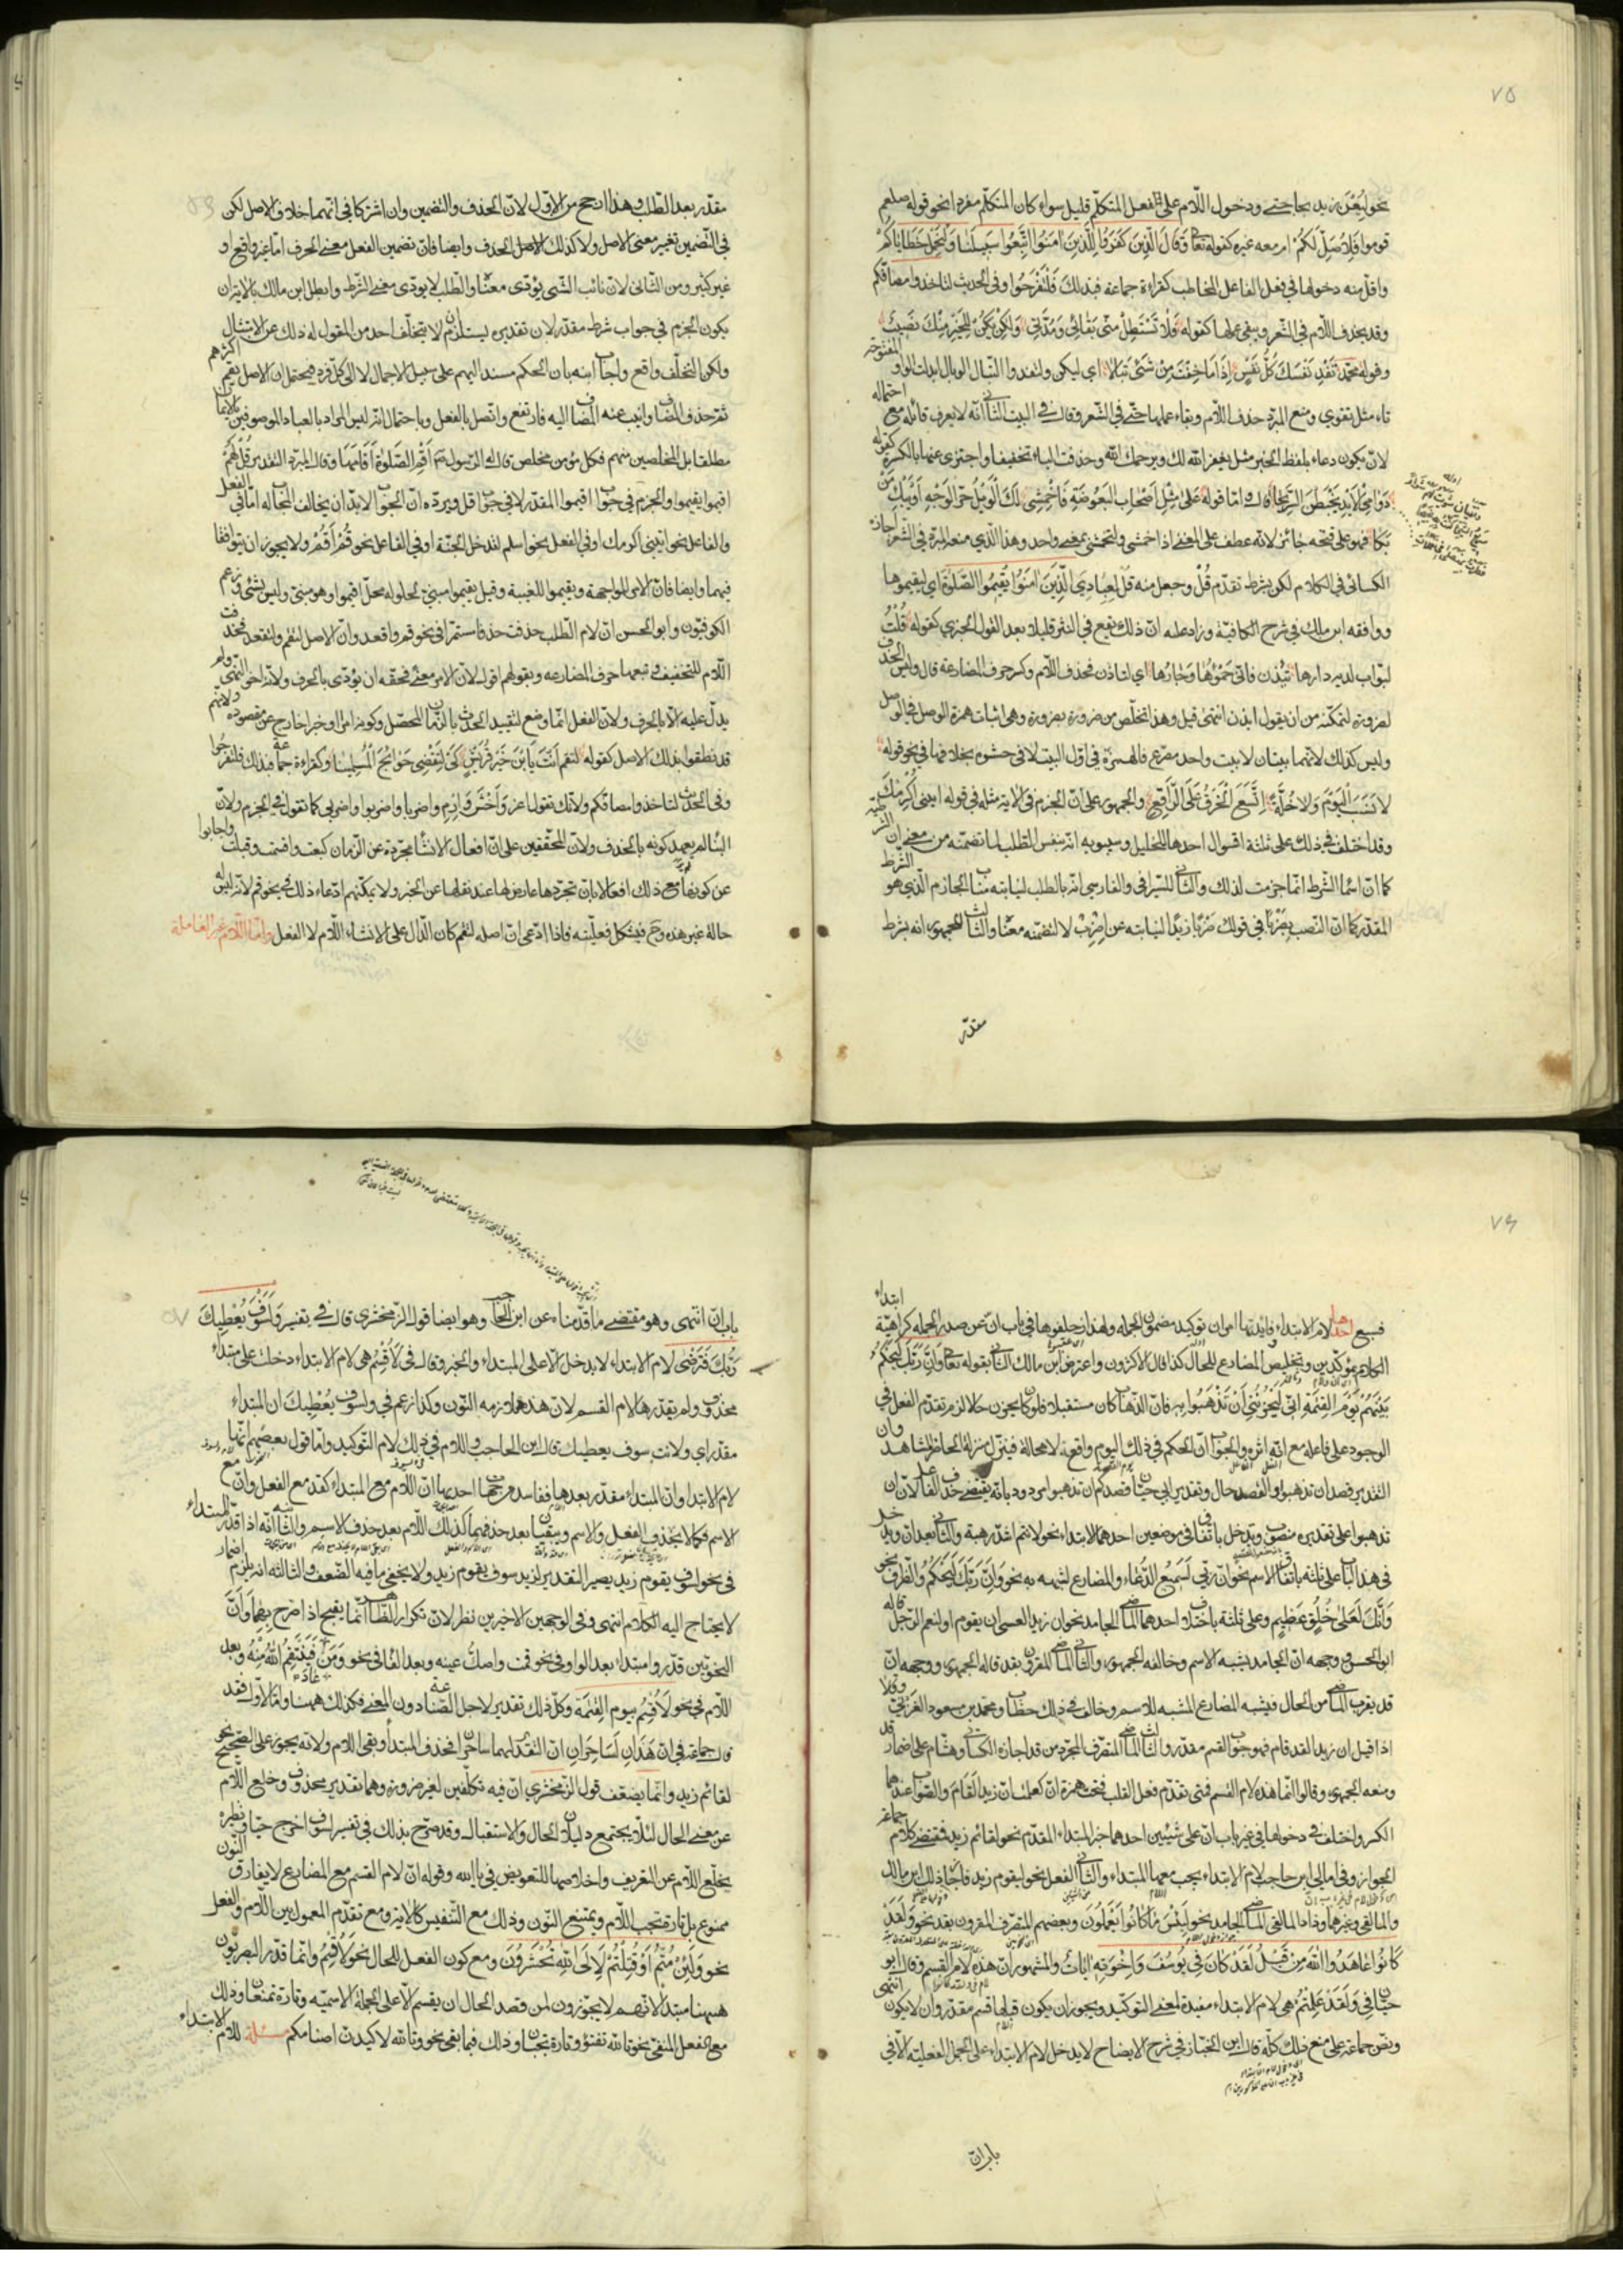 ٧٥
نحو ليُعْنَ زيد بحاجتى ودخول اللّام على فعل المتكلّم قليل سواء كان المتكلّم مفردا نحو قوله صلعم
قوموا فَلِاُصَلِّ لكُمْ او معه غيره كقوله تعا وَقَالَ الَّذِينَ كَفَرُوا لِلَّذِينَ اٰمَنُوا اتَّبِعُوا سَبِيلَنَا وَلْنَحْمِلْ خَطَايَاكُمْ
واقل منه دخولها فى فعل الفاعل المخاطب كقراءة جماعة فبذلكَ فَلْتَفْرَحُوا وفى الحديث لتاخذوا مصافّكم
وقد يحذف اللّام فى الشّعر ويبقى عملها كقوله فَلَا تَسْتَطِلْ مِنّى بَقَائِى وَمُدَّتِى وَلكِنْ يَكُنْ لِلْخَيْرِ مِنْكَ نَصِيبُ
وقوله محمّد تَفْدِ نَفْسَكَ كُلُّ نَفْسٍ اِذَا مَا خِفْتَ مِنْ شَىْءٍ تَبَالَا اى ليكن ولتفد والتّبال الوبال ابدلت الواو المفتوحة
تاء مثل تقوى ومنع المبرّد حذف اللّام وبقاء عملها حتّى فى الشّعر وقال فى البيت الثّانى انّه لا يعرف قائله مع احتماله
لان يكون دعاء بلفظ الخبر مثل يغفر اللّه لك ويرحمك اللّه وحذفت الياء تخفيفا واجتزى عنها بالكسرة كقوله
دَوَامِى الأَيْدِ يَخْبِطْنَ السَّرِيحَا قال وامّا قوله عَلَى مِثْلِ اَصْحَابِ الْبَعُوضَةِ فَاخْمِشِى لَكَ الْوَيْلُ حُرَّ الْوَجْهِ اَوْ يَبْكِ مَنْ
بَكَا فهو على قبحه جائز لانّه عطف على المعنى اذ اخمشى ولتخمشى بمعنى واحد وهذا الّذى منعه المبرّد فى الشّعر اجازه
الكسائى فى الكلام لكن بشرط تقدّم قُلْ وجعل منه قُلْ لِعِبَادِىَ الَّذِينَ اٰمَنُوا يُقِيمُوا الصَّلٰوةَ اى ليقيموها
ووافقه ابن مالك فى شرح الكافية وزاد عليه انّ ذلك يقع فى النثر قليلا بعد القول الخبرى كقوله قُلْتُ
لبوّاب لديه دارها تِيذَن فانّى حَمْؤُهَا وَجَارُهَا اى لتاذن فحذف اللّام وكسر حرف المضارعة قال وليس الحذف
لضرورة لتمكّنه من ان يقول ايذن انتهى قيل وهذا تخلّص من ضرورة بضرورة وهى اثبات همزة الوصل فى الوصل
وليس كذلك لانّهما بيتان لا بيت واحد مصرّع فالهمزة فى اوّل البيت لا فى حشوه بخلافها فى نحو قوله
لا نَسَبَ الْيَوْمَ وَلا خُلَّةً اِتَّسَعَ الْخَرْقُ عَلَى الرَّاقِعِ والجمهور على انّ الجزم فى الاية مثله فى قوله ايتنى اُكْرِمْكَ
وقد اختلف فى ذلك على ثلثة اقوال احدها للخليل وسيبويه انّه بنفس الطّلب لما تضمّنه من معنى ان الشّرطيّة
كما انّ اسما الشّرط انّما جزمت لذلك والثّانى للسّيرافى والفارسى انّه بالطلب لنيابته مناب الجازم الّذى هو الشّرط
المقدّر كما انّ النّصب بِضَرْبًا فى قولك ضَرْبًا زَيْدًا لنيابته عن اِضْرِبْ لا لتضمّنه معناه والثّالث للجمهور انه بشرط
مقدّر
مقدّر بعد الطّلب وهذا ارجح من الاوّل لانّ الحذف والتضمين وان اشتركا فى انّهما خلاف الاصل لكن
فى التّضمين تغيير معنى الاصل ولا كذلك الحذف وايضا فانّ تضمين الفعل معنى الحرف امّا غير واقع او
غير كثير ومن الثّانى لانّ نائب الشّى يؤدّى معناه والطّلب لا يودّى معنى الشّرط وابطل ابن مالك بالاية ان
يكون الجزم فى جواب شرط مقدّر لان تقديره يستلزم ان لا يتخلّف احد من المقول له ذلك عن الامتثال
ولكن التخلّف واقع واجاب ابنه بان الحكم مسند اليهم على سبيل الاجمال لا الى كل فرد فيحتمل ان الاصل يقم اكثرهم
ثمّ حذف المضاف وانيب عنه المضاف اليه فارتفع واتّصل بالفعل وباحتمال انّه ليس المراد بالعباد الموصوفين بالايمان
مطلقا بل المخلصين منهم فكل مؤمن مخلص قال له الرّسول ع م اَقِمِ الصّلٰوةَ اَقَامَهَا وقال المبرّد التقدير قُلْ لَهُمْ
اقيموا يقيموا والجزم فى جواب اقيموا المقدّر لا فى جواب قل ويردّه انّ الجواب لابدّ ان يخالف المجاب له امّا فى الفعل
والفاعل نحو ايتنى اكرمك او فى الفعل نحو اسلم تدخل الجنّة او فى الفاعل نحو قُمْ اَقُمْ ولا يجوز ان يتوافقا
فيهما وايضا فانّ الامر للمواجهة ويقيموا للغيبة وقيل يقيموا مبنىّ لحلوله محلّ اقيموا وهو مبنىّ وليس بشئ وزعم
الكوفيّون وابو الحسن انّ لام الطّلب حذفت حذفا مستمرّا فى نحو قم واقعد وانّ الاصل لتقم ولتقعد فحذفت
اللّام للتخفيف وتبعها حرف المضارعه وبقولهم اقول لانّ الامر معنى فحقّه ان يؤدّى بالحرف ولانّه اخو النّهى ولم
يدلّ عليه الّا بالحرف ولانّ الفعل انّما وضع لتقييد الحدث بالزّمان المحصّل وكونه امرًا او خبرا خارج عن مقصوده ولانّهم
قد نطقوا بذلك الاصل كقوله لتقم اَنْتَ يَا بْنَ خَيْرِ قُرَيْشٍ كَىْ لِتَقْضِى حَوَائِجَ الْمُسْلِمِينَا وكقراءة جماعة فبذلك فلتفرحوا
وفى الحديث لتاخذوا مصافّكم ولانّك تقول اغز وَاخْشَ وَارْمِ واضربا واضربوا واضربى كما تقول فى الجزم ولانّ
البنا لم يعهد كونه بالحذف ولانّ المحقّقين على انّ افعال الانشا مجرّدة عن الزمان كبعت واقسمت وقبلت واجابوا
عن كونها مع ذلك افعالا بان تجرّدها عارض لها عند نقلها عن الخبر ولا يمكنهم ادّعاء ذلك فى نحو قم لانّه ليس له
حالة غير هذه وح فيشكل فعليّته فاذا ادّعى انّ اصله لتقم كان الدّال على الانشاء اللّام لا الفعل وامّا اللّام غير العاملة
٧٦
فسبع احدها لام الابتداء وفائدتها امران توكيد مضمون الجمله ولهذا زحلقوها فى باب انّ عن صدر الجمله كراهيّة ابتداء
الكلام بمؤكّدين وتخليص المضارع للحال كذا قال الاكثرون واعترض ابن مالك الثّانى بقوله تعا وَاِنَّ رَبَّكَ لَيَحْكُمُ
بَيْنَهُمْ يَوْمَ الْقِيٰمَةِ اِنِّى لَيَحْزُنُنِى اَنْ تَذْهَبُوا بِهِ فانّ الذّهاب كان مستقبلا فلو كان يحزن حالا لزم تقدّم الفعل فى
الوجود على فاعله مع انّه اثره والجواب انّ الحكم فى ذلك اليوم واقعة لا محالة فينزل منزلة الحاضر المشاهد وان
التقدير قصد ان تذهبوا والقصد حال وتقدير ابى حيّان قصدكم ان تذهبوا مردود بانّه يقتضى حذف الفاعل لانّ ان
تذهبوا على تقديره منصوب وتدخل باتّفاق فى موضعين احدهما الابتداء نحو لانتم اشدّ رهبة والثانى بعد انّ ويدخل
فى هذا الباب على ثلثة باتّفاق الاسم نحو انّ ربّى لَسَمِيعُ الدُّعَاءِ والمضارع لشبهه به نحو وَاِنَّ رَبَّكَ لَيَحْكُمُ والظّرف نحو
وَاِنَّكَ لَعَلٰى خُلُقٍ عَظِيمٍ وعلى ثلثة باختلاف احدها الماضى الجامد نحو ان زيدا لعسى ان يقوم او لنعم الرّجل قاله
ابو الحسن ووجهه انّ الجامد يشبه الاسم وخالفه الجمهور والثّانى الماضى المقرون بقد قاله الجمهور ووجهه انّ
قد يقرب الماضى من الحال فيشبه المضارع المشبه للاسم وخالف فى ذلك خطّاب ومحمّد بن مسعود الغزنىّ وقالا
اذا قيل ان زيدا لقد قام فهو جواب القسم مقدّر والثالث الماضى المتصرّف المجرّد من قد اجازه الكسائى وهشام على اضمار قد
ومنعه الجمهور وقالوا انّما هذه لام القسم فمتى تقدّم فعل القلب فتحت همزة انّ كعلمت انّ زيدا لَقَامَ والصّواب عندهما
الكسر واختلف فى دخولها فى غير باب انّ على شيئين احدهما خبر المبتداء المقدّم نحو لقائم زيد فمقتضى كلام جماعة
الجواز وفى امالى ابن حاجب لام الابتداء يجب معها المبتداء والثّانى الفعل نحو ليقوم زيد فاجاز ذلك ابن مالك
والمالقى وغيرهما وزاد المالقى الماضى الجامد نحو لَبِئْسَ مَا كَانُوا يَعْمَلُونَ وبعضهم المتصرّف المقرون بقد نحو وَلَقَدْ
كَانُوا عَاهَدُوا اللّٰهَ مِنْ قَبْلُ لَقَدْ كَانَ فِى يُوسُفَ وَاِخْوَتِهِ اٰيَاتٌ والمشهور انّ هذه لام القسم وقال ابو
حيّان فى وَلَقَدْ عَلِمْتُمْ هى لام الابتداء مفيدة لمعنى التوكيد ويجوز ان يكون قبلها قسم مقدّر وان لا يكون انتهى
ونصّ جماعة على منع ذلك كلّه قال ابن الخبّاز فى شرح الايضاح لا يدخل لام الابتداء على الجمل الفعليّة الّا فى
باب انّ
باب انّ انتهى وهو مقتضى ما قدّمناه عن ابن الحاجب وهو ايضا قول الزّمخشرى قال فى تفسير وَلَسَوْفَ يُعْطِيكَ
رَبُّكَ فَتَرْضٰى لام الابتداء لا يدخل الّا على المبتداء والخبر وقال فى لَاُقْسِمُ هى لام الابتداء دخلت على مبتداء
محذوف ولم يقدّرها لام القسم لانّ عنده ملازمه النّون وكذا زعم فى ولسوف يُعْطِيكَ ان المبتداء
مقدّر اى ولانت سوف يعطيك قال ابن الحاجب واللام فى ذلك لام التّوكيد وامّا قول بعضهم انّها
لام الابتداء وانّ المبتداء مقدّر بعدها ففاسد من جهات احديها انّ اللّام مع المبتداء كقد مع الفعل وانّ مع
الاسم فكما لا يحذف الفعل والاسم ويبقيان بعد حذفهما كذلك اللّام بعد حذف الاسم والثّانية انّه اذا قدّر المبتداء
فى نحو لسوف يقوم زيد يصير التقدير لزيد سوف يقوم زيد ولا يخفى ما فيه الضّعف والثالثة انّه يلزم اضمار
لا يحتاج اليه الكلام انتهى وفى الوجهين الاخيرين نظر لانّ تكرار الظّاهر انّما يقبح اذا صرح بهما وَلانّ
النحويّين قدّروا مبتداء بعد الواو فى نحو قمت واصكّ عينه وبعد الفا فى نحو وَمَنْ عَادَ فَيَنْتَقِمُ اللّٰهُ مِنْهُ وبعد
اللّام فى نحو لَاُقْسِمُ بيوم القِيٰمَةِ وكلّ ذلك تقدير لاجل الصّناعة دون المعنى فكذلك ههنا وامّا الاوّل فقد
قال جماعة فى انّ هَذَانِ لَسَاحِرَانِ انّ التقدير لهما ساحران فحذف المبتدأ وبقى اللّام ولانه يجوز على الصّحيح نحو
لقائم زيد وانّما يضعّف قول الزّمخشرى انّ فيه تكلّفين لغير ضرورة وهما تقدير محذوف وخلع اللّام
عن معنى الحال لئلّا يجتمع دليلان الحال والاستقبال وقد صرّح بذلك فى تفسير لسوف اخرج حيّا ونظره
بخلع اللّام عن التعريف واخلاصها للتعويض فى يا اللّه وقوله انّ لام القسم مع المضارع لا يفارق النّون
ممنوع بل تارة تجب اللّام ويمتنع النّون وذلك مع التّنفيس كالاية ومع تقدّم المعمول بين اللّام والفعل
نحو وَلَئِنْ مُتُّمْ اَوْ قُتِلْتُمْ لَاِلَى اللّٰهِ تُحْشَرُونَ ومع كون الفعل للحال نحو لَاُقْسِمُ وانّما قدّر البصريّون
ههنا مبتدا لانّهم لا يجوّزون لمن قصد الحال ان يقسم الّا على الجملة الاسميّه وتارة تمتنعان وذلك
مع الفعل المنفى نحو تاللّه تفتؤ وتارة تجبان وذلك فيما بقى نحو وتاللّه لاكيدنّ اصنامكم مسئلة للام الابتداء